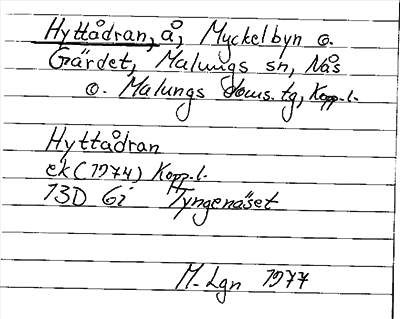 Hyttådran, å, Myckelbyn o.
Gärdet, Malungs sn, Nås
o. Malungs doms. tg, Kopp.l.
Hyttådran
ek (1974) Kopp.l.
13D 6i Tyngenäset
M. Lgn 1977